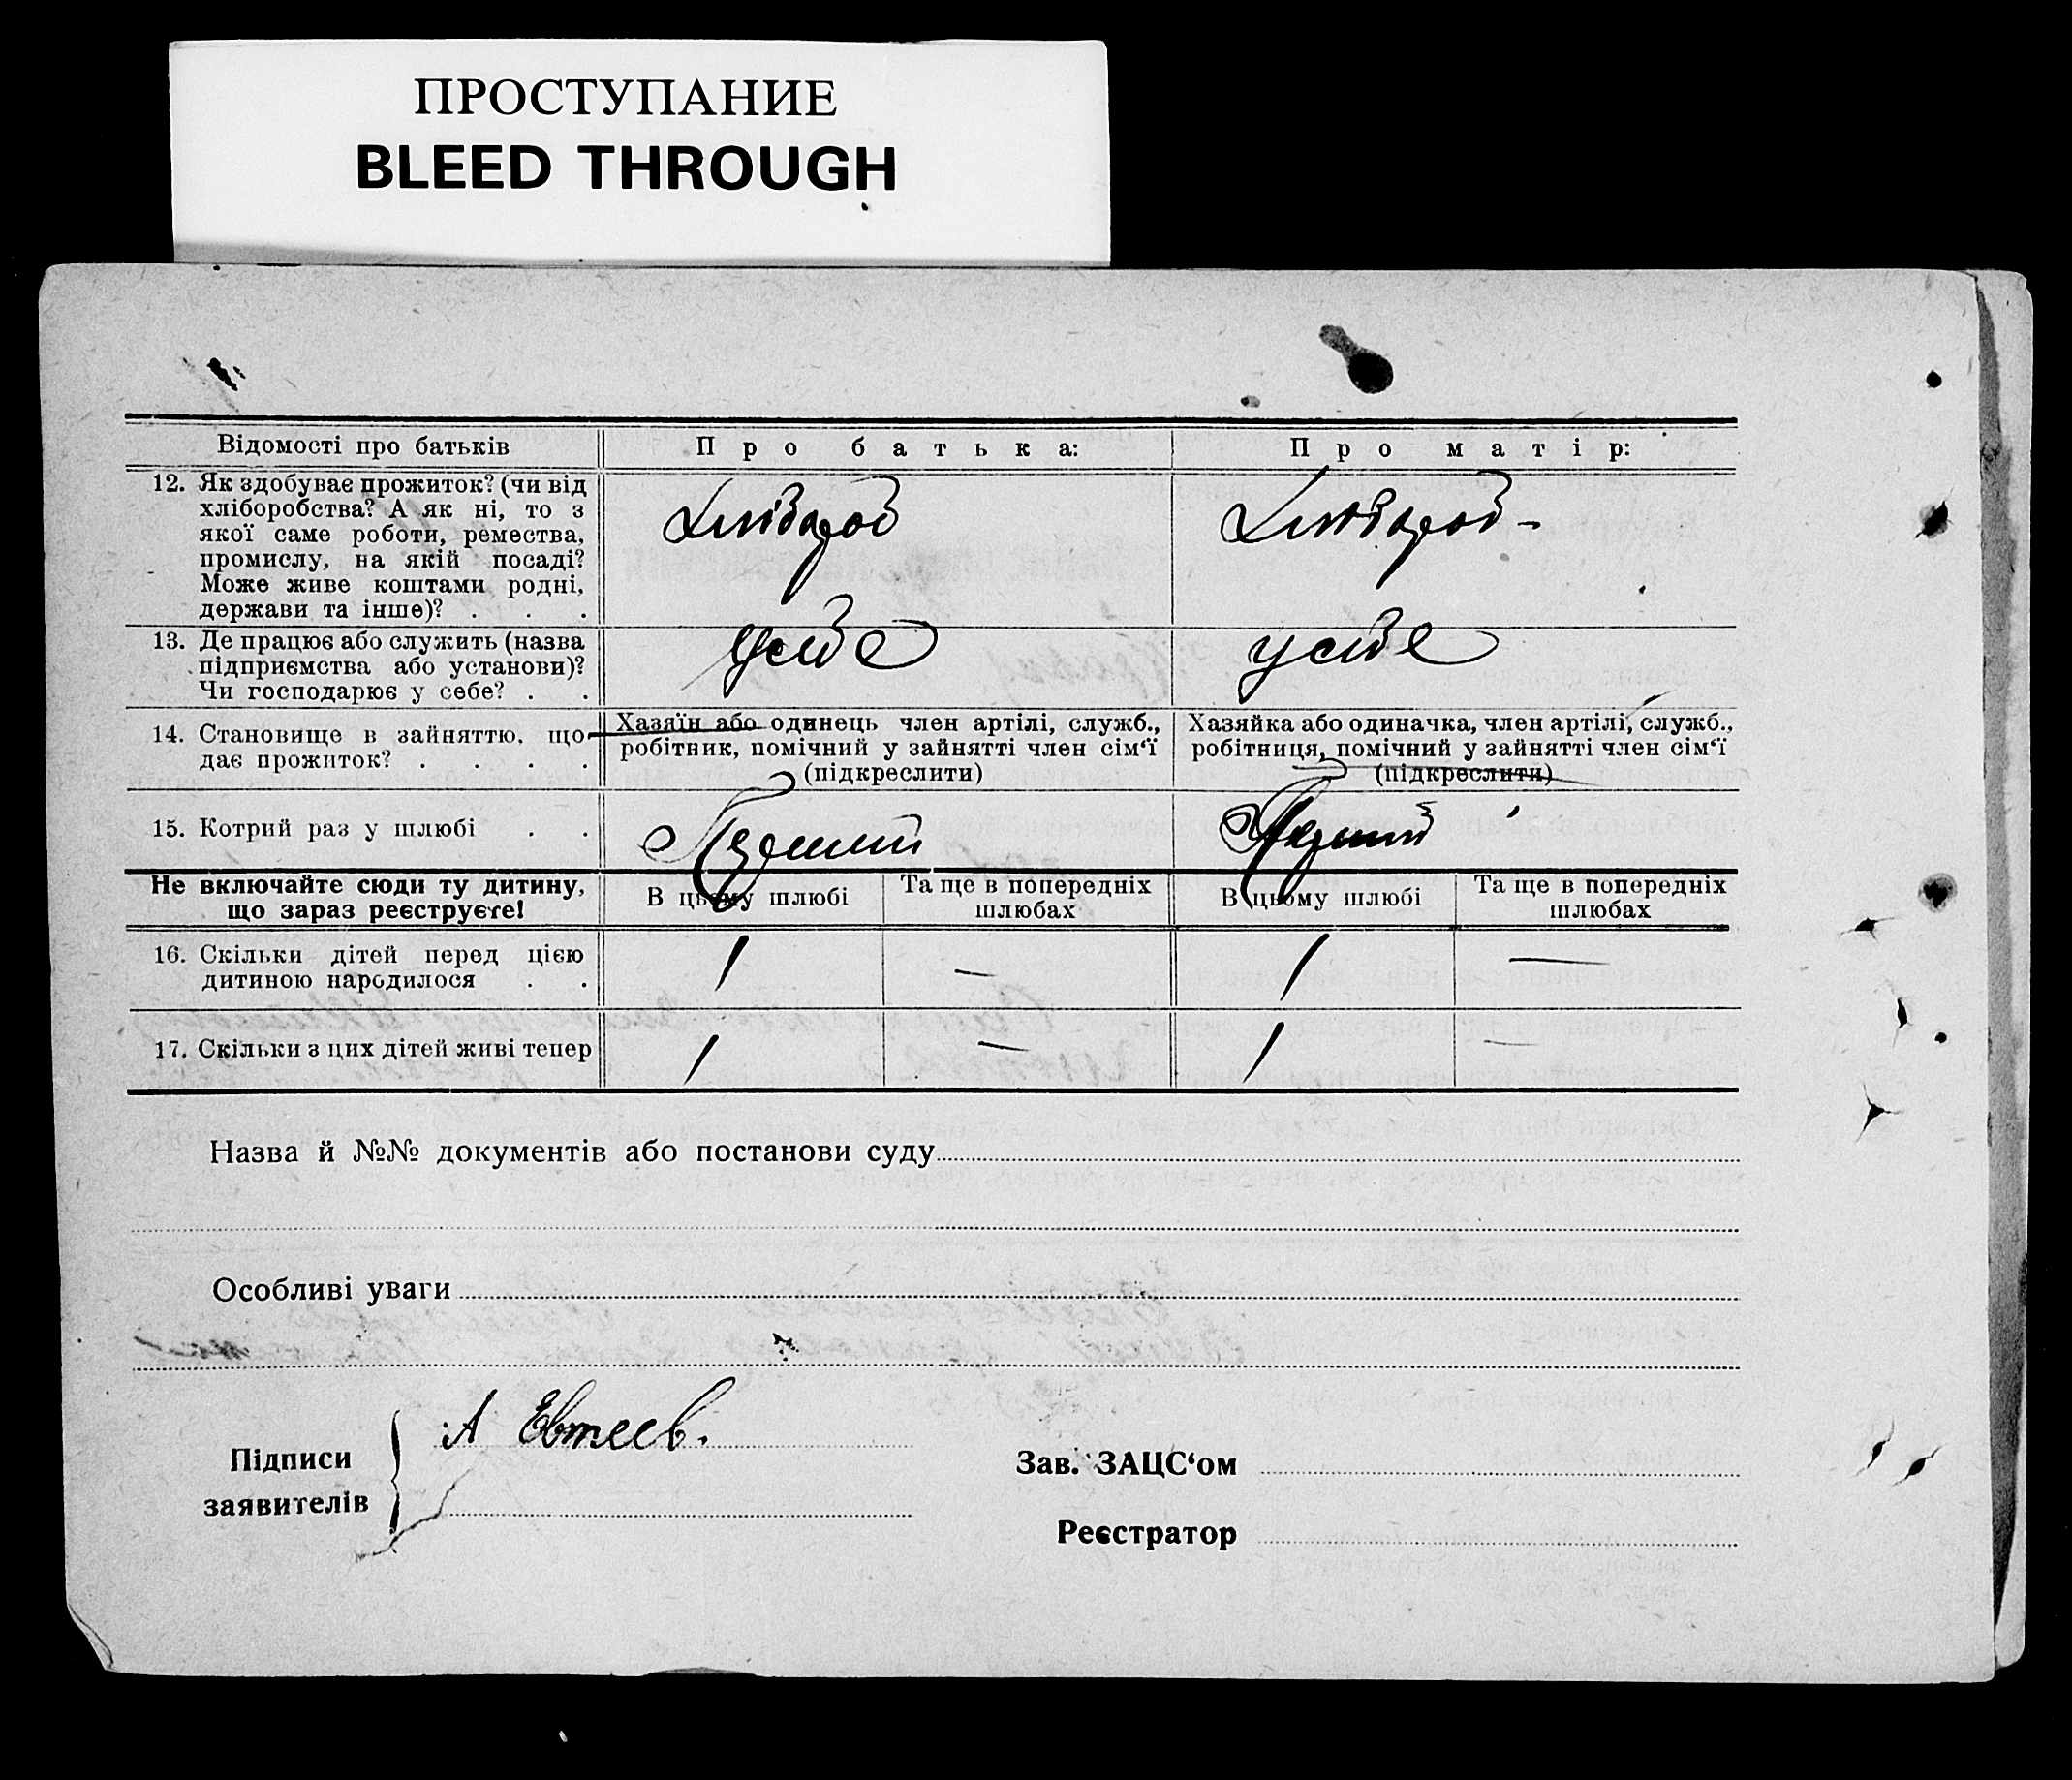 ПРОСТУПАНИЕ
BLEED THROUGH
Відомості про батьків
Про батька:
Про матір:
12. Як здобуває прожиток? (чи від
хліборобства? А як ні, то з
якої саме роботи, ремества,
промислу, на якій посаді?
Може живе коштами родні,
держави та інше)? . . .
Хлібороб
Хлібороб-
13. Де працює або служить (назва
підприємства або установи)?
Чи господарює у себе? . .
у себе
у себе
14. Становище в зайняттю, що
дає прожиток? . . . .
Хазяїн або одинець член артілі, служб.,
робітник, помічний у зайнятті член сім‘ї
(підкреслити)
Хазяйка або одиначка, член артілі, служб.,
робітниця, помічний у зайнятті член сім‘ї
(підкреслити)
15. Котрий раз у шлюбі . .
Первший
Первий
Не включайте сюди ту дитину,
що зараз реєструєте!
В цьому шлюбі
Та ще в попередніх
шлюбах
В цьому шлюбі
Та ще в попередніх
шлюбах
16. Скільки дітей перед цією
дитиною народилося . .
1
—
1
—
17. Скільки з цих дітей живі тепер
1
—
1
—
Назва й №№ документів або постанови суду
Особливі уваги
Підписи
заявителів
А Евтеев.
Зав. ЗАЦС‘ом
Реєстратор